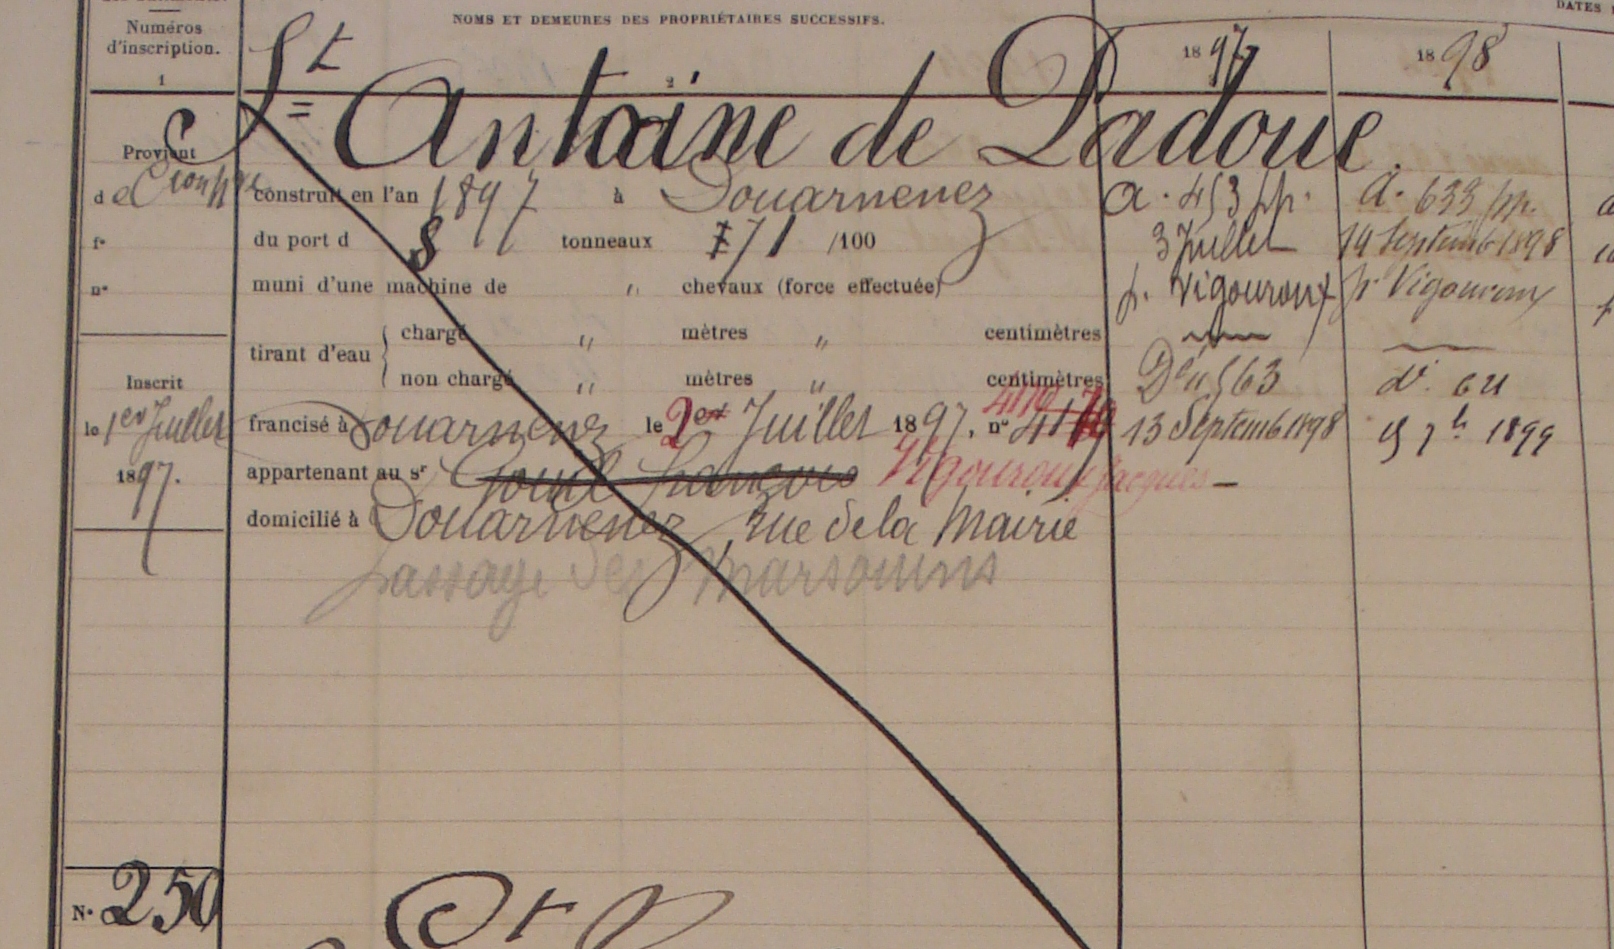 Numéros
d'inscription.
1
NOMS ET DEMEURES DES PROPRIÉTAIRES SUCCESSIFS.
2
DATES
1897
1898
St Antoine de Padoue.
Provient
d
f°
n°
construit en l'an 1897 à Douarnenez
du port d 8 tonneaux 71 /100
muni d'une machine de " chevaux (force effectuée)
tirant d'eau
chargé " mètres " centimètres
non chargé " mètres " centimètres
Inscrit
le 1er Juillet
1897.
francisé à Douarnenez le 2 Juillet 1897, n°
appartenant au sr Vigouroux Jacques
domicilié à Douarnenez, rue de la Mairie
passage des Marsouins
a. 453 pp.
3 Juillet
p. Vigouroux
563
13 Septemb 1898
A. 633 pp.
14 Septemb 1898
pr Vigouroux
1899
N° 250
St